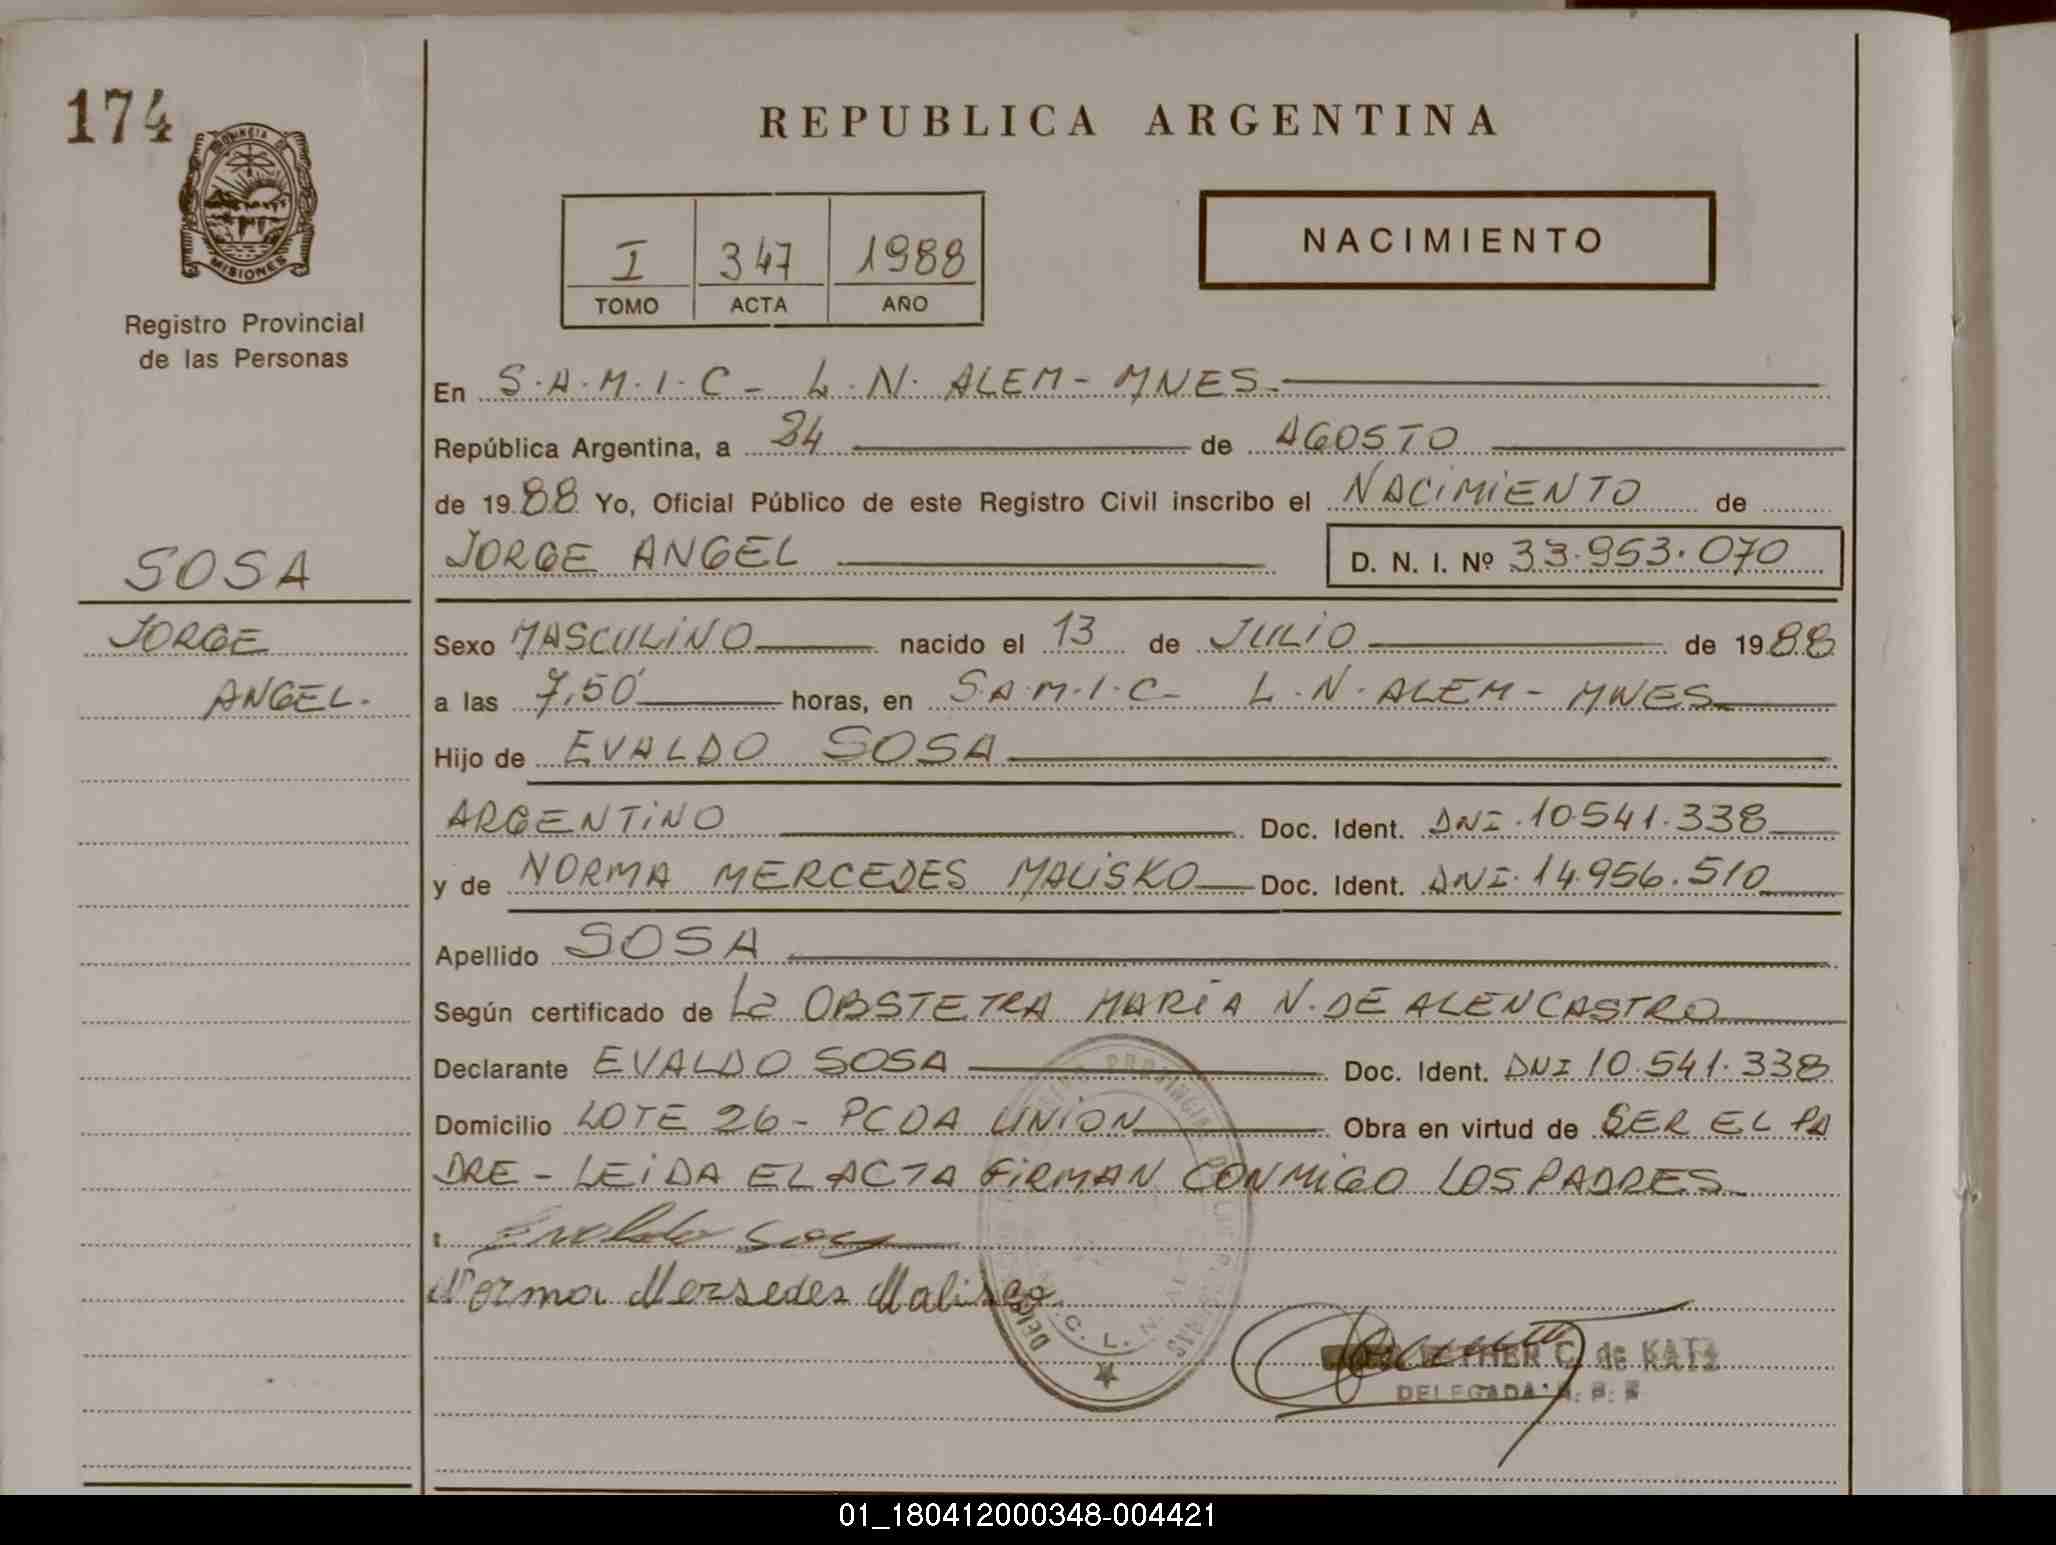 174
PROVINCIA
MISIONES
Registro Provincial
de las Personas
SOSA
JORGE
ANGEL.
REPUBLICA ARGENTINA
I 347 1988
TOMO ACTA AÑO
NACIMIENTO
En S.A.M.I.C- L.N. ALEM - MNES.
República Argentina, a 24 de AGOSTO
de 1988 Yo, Oficial Público de este Registro Civil inscribo el NACIMIENTO de
JORGE ANGEL D. N. I. Nº 33.953.070
Sexo MASCULINO nacido el 13 de JULIO de 1988
a las 7,50 horas, en S.A.M.I.C- L.N. ALEM - MNES
Hijo de EVALDO SOSA
ARGENTINO Doc. Ident. DNI.10.541.338
y de NORMA MERCEDES MALISKO Doc. Ident. DNI.14.956.510
Apellido SOSA
Según certificado de La OBSTETRA MARÍA N. DE ALENCASTRO
Declarante EVALDO SOSA Doc. Ident. DNI 10.541.338
Domicilio LOTE 26 - PCDA UNION Obra en virtud de SER EL PA
DRE - LEIDA EL ACTA FIRMAN CONMIGO LOS PADRES
Evaldo Sosa
Norma Mersedes Malisko
C. de KATZ
DELEGADA
01_180412000348-004421